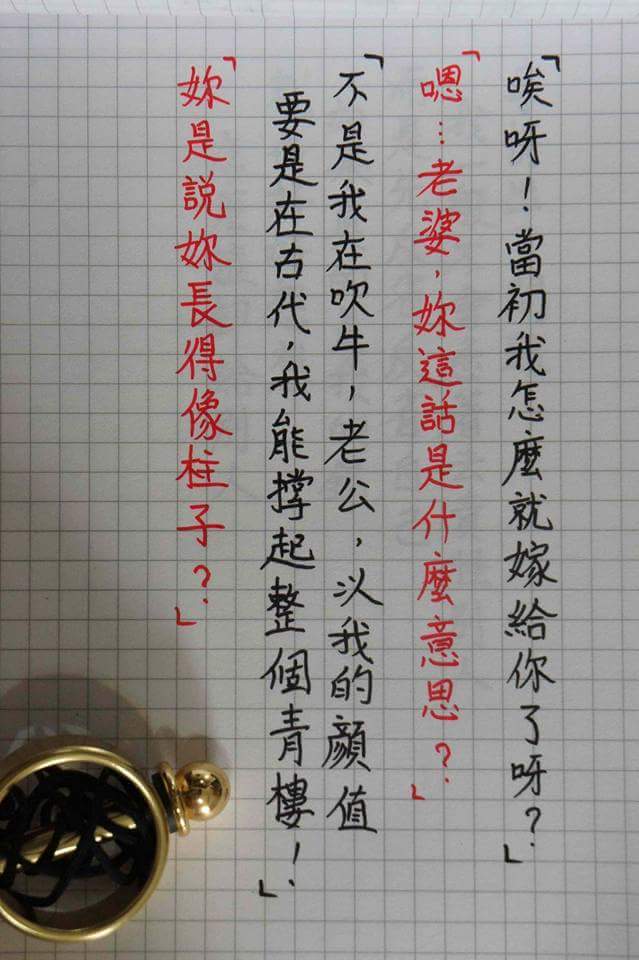 「唉呀！當初我怎麼就嫁給你了呀？」
「嗯…老婆，妳這話是什麼意思？」
「不是我在吹牛，老公，以我的顏值
要是在古代，我能撐起整個青樓！」
「妳是說妳長得像柱子？」